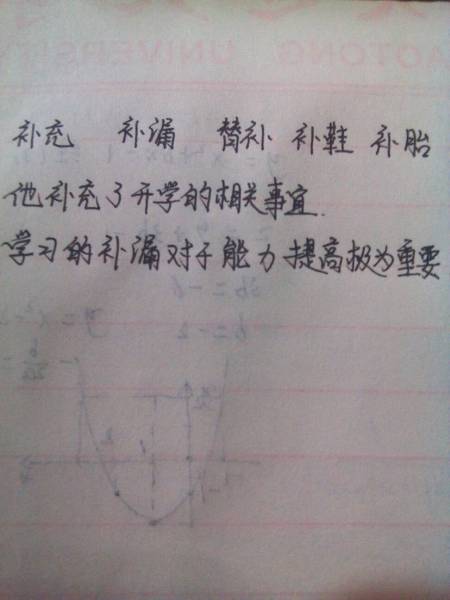 补充 补漏 替补 补鞋 补胎
他补充了开学的相关事宜.
学习的补漏对于能力提高极为重要